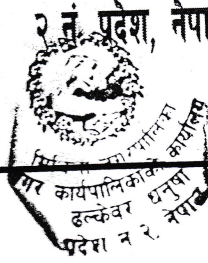 २ नं. प्रदेश, नेपा
नगर कार्यपालिकाको कार्यालय
ढल्केवर धनुषा
प्रदेश नं २, नेपाल